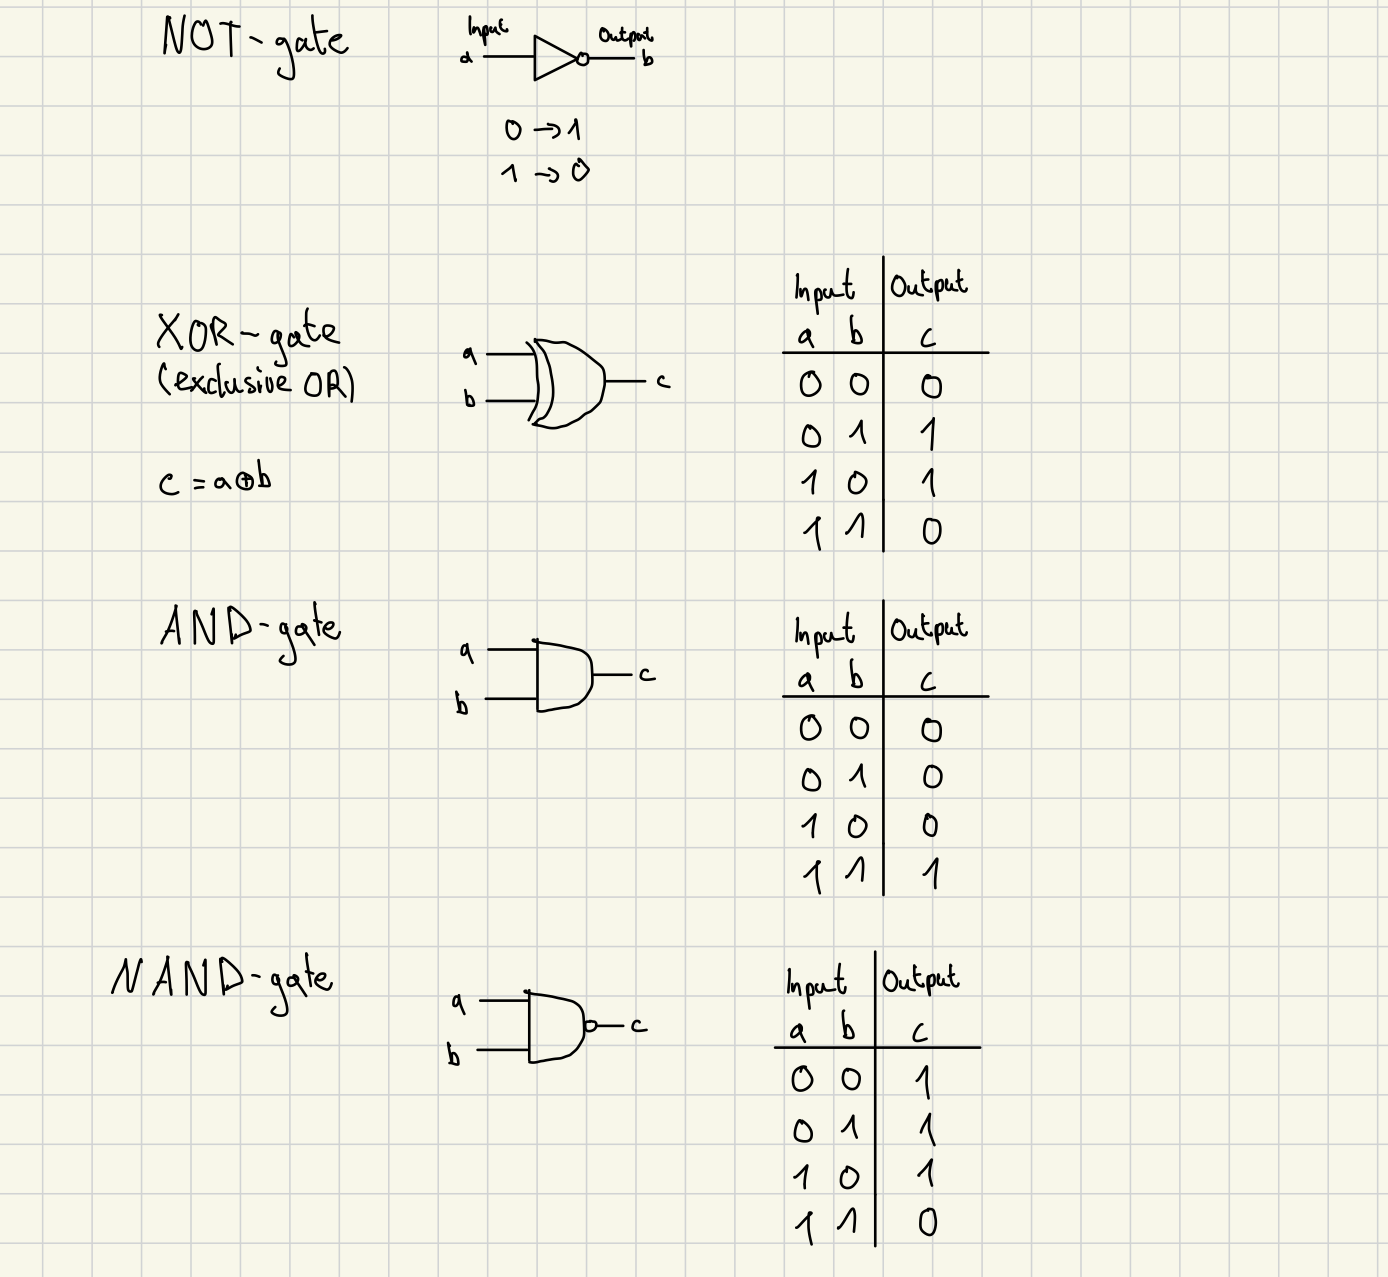 NOT-gate
Input Output
a b
0 → 1
1 → 0
XOR-gate
(exclusive OR)
c = a⊕b
a
b
c
Input Output
a b c
0 0 0
0 1 1
1 0 1
1 1 0
AND-gate
a
b
c
Input Output
a b c
0 0 0
0 1 0
1 0 0
1 1 1
NAND-gate
a
b
c
Input Output
a b c
0 0 1
0 1 1
1 0 1
1 1 0